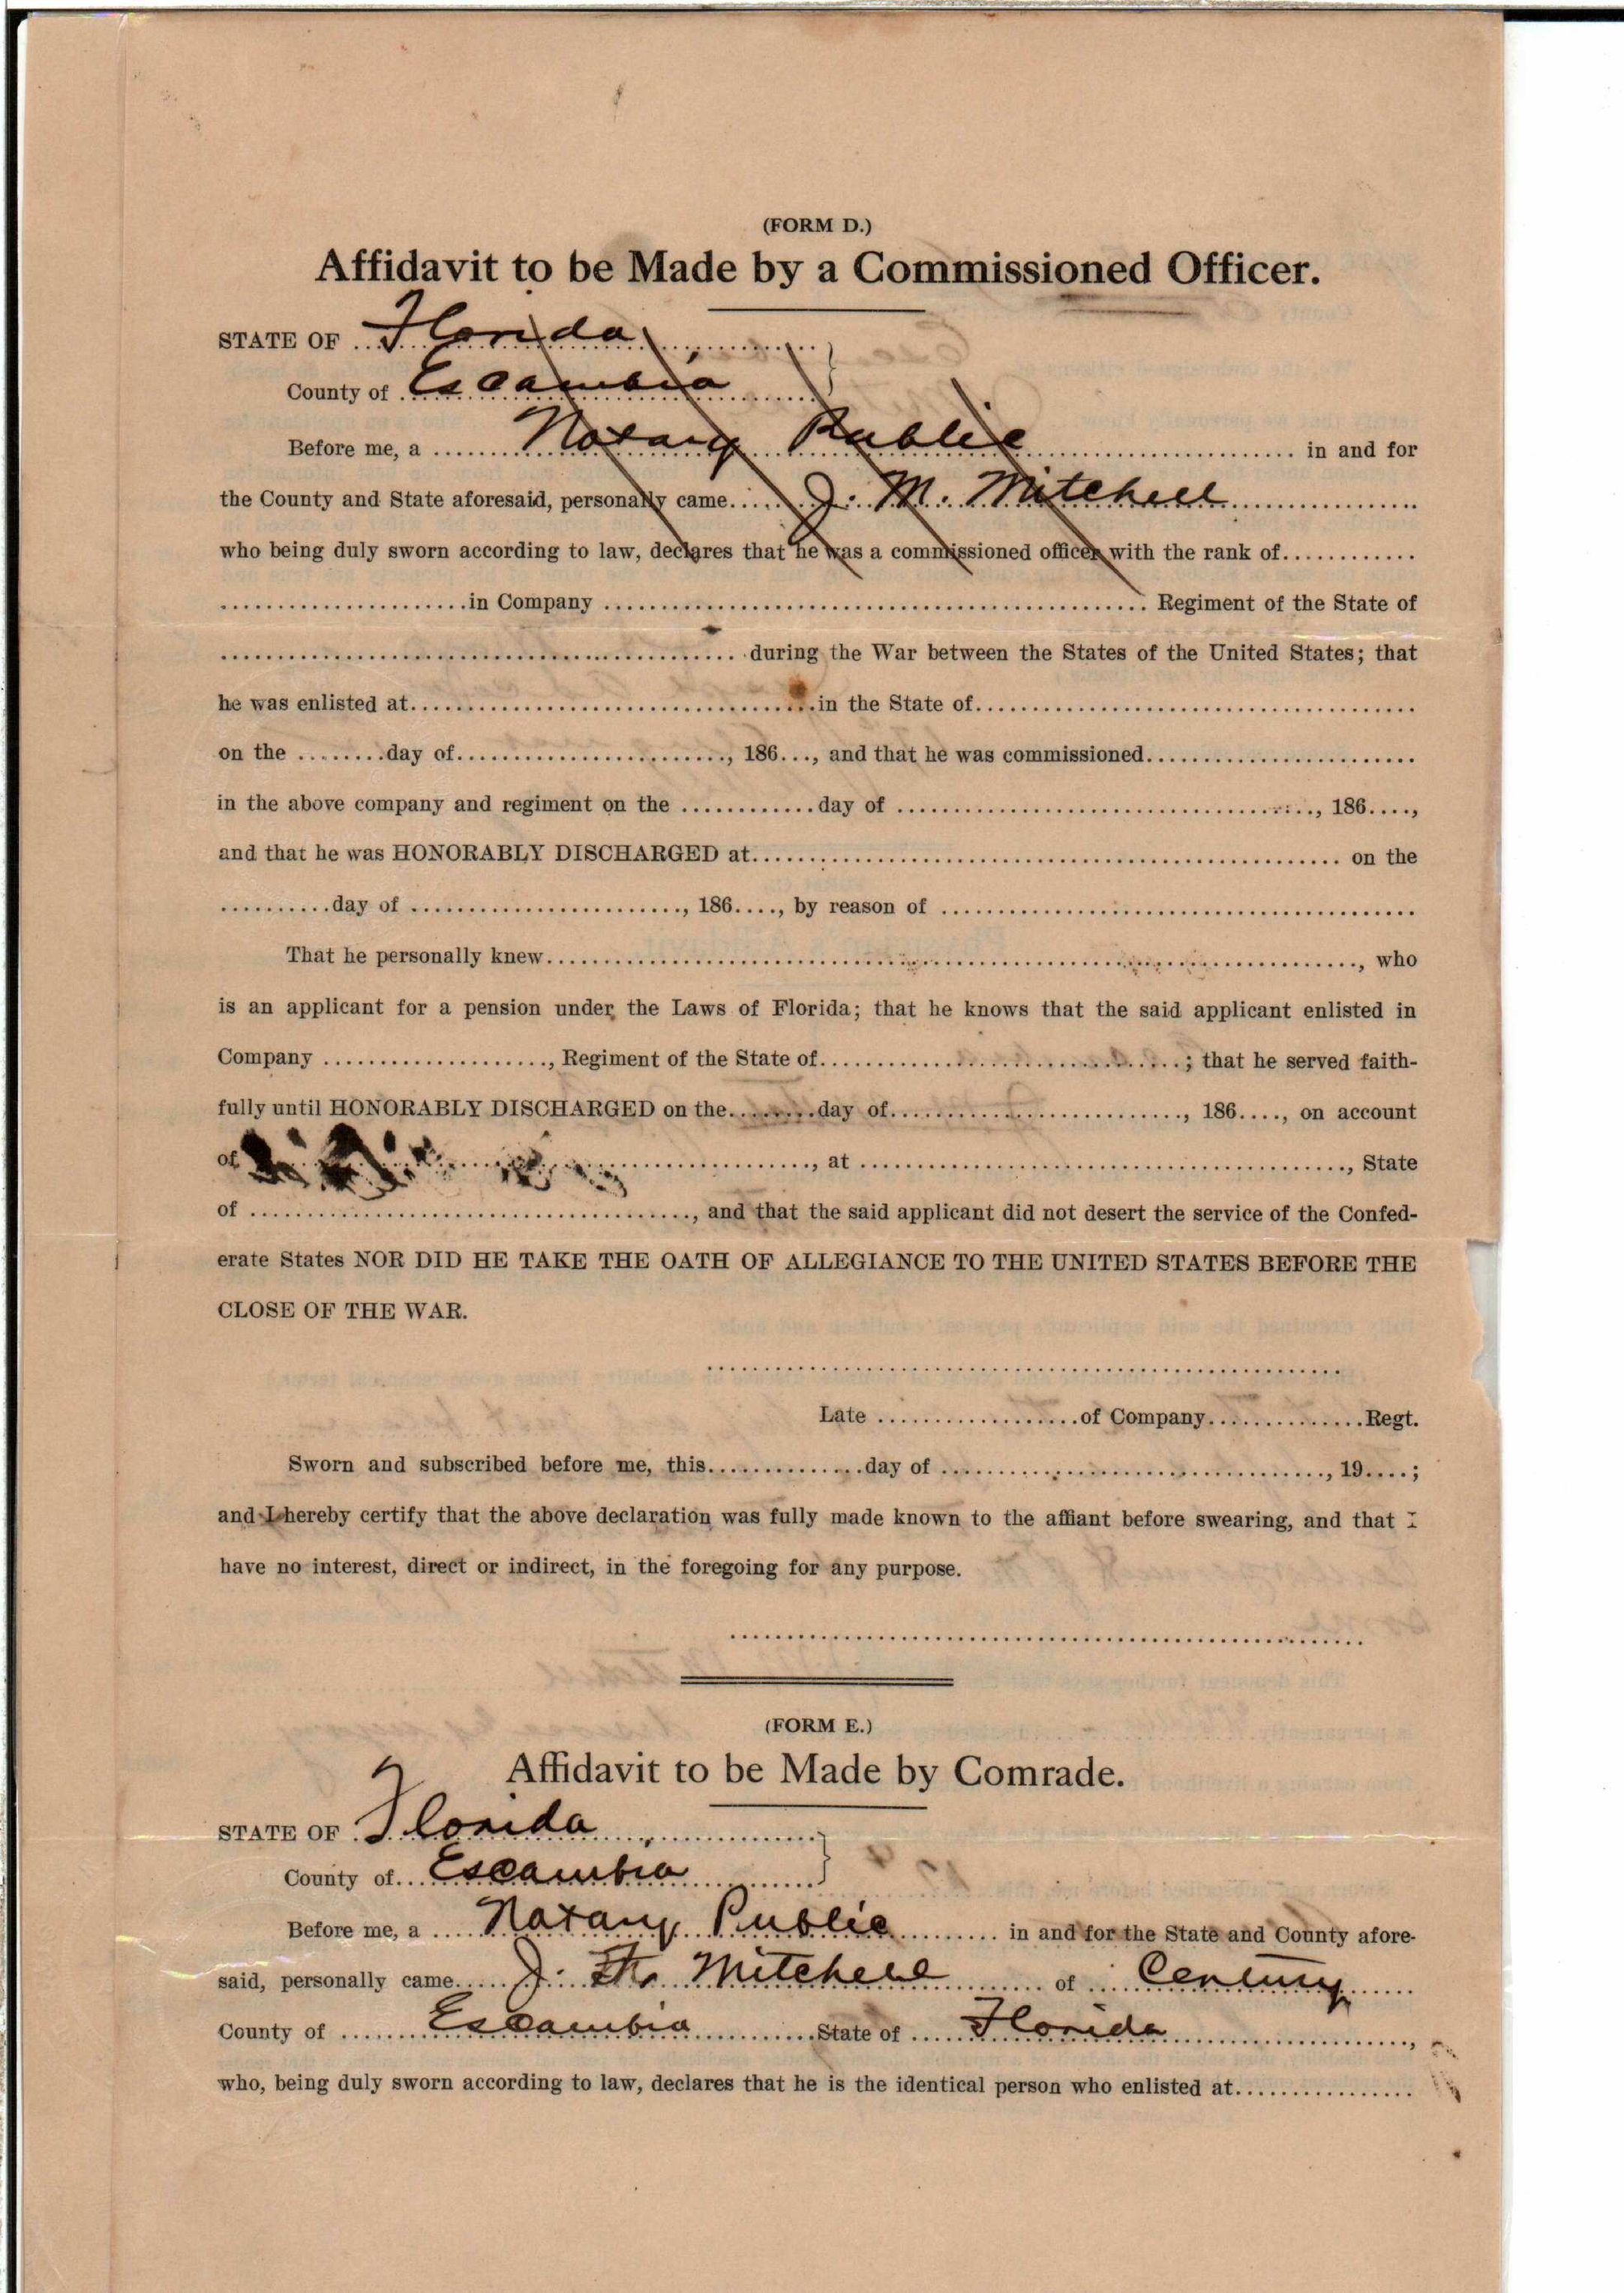 (FORM D.)
Affidavit to be Made by a Commissioned Officer.
STATE OF Florida
County of Escambia
Before me, a Notary Public in and for
the County and State aforesaid, personally came J. M. Mitchell
who being duly sworn according to law, declares that he was a commissioned officer with the rank of
in Company Regiment of the State of
during the War between the States of the United States; that
he was enlisted at in the State of
on the day of , 186..., and that he was commissioned
in the above company and regiment on the day of , 186....,
and that he was HONORABLY DISCHARGED at on the
day of , 186...., by reason of
That he personally knew , who
is an applicant for a pension under the Laws of Florida; that he knows that the said applicant enlisted in
Company , Regiment of the State of ; that he served faith-
fully until HONORABLY DISCHARGED on the day of , 186...., on account
of , at , State
of , and that the said applicant did not desert the service of the Confed-
erate States NOR DID HE TAKE THE OATH OF ALLEGIANCE TO THE UNITED STATES BEFORE THE
CLOSE OF THE WAR.
Late of Company Regt.
Sworn and subscribed before me, this day of , 19....;
and I hereby certify that the above declaration was fully made known to the affiant before swearing, and that I
have no interest, direct or indirect, in the foregoing for any purpose.
(FORM E.)
Affidavit to be Made by Comrade.
STATE OF Florida
County of Escambia
Before me, a Notary Public in and for the State and County afore-
said, personally came J. Mitchell of Century
County of Escambia State of Florida ,
who, being duly sworn according to law, declares that he is the identical person who enlisted at